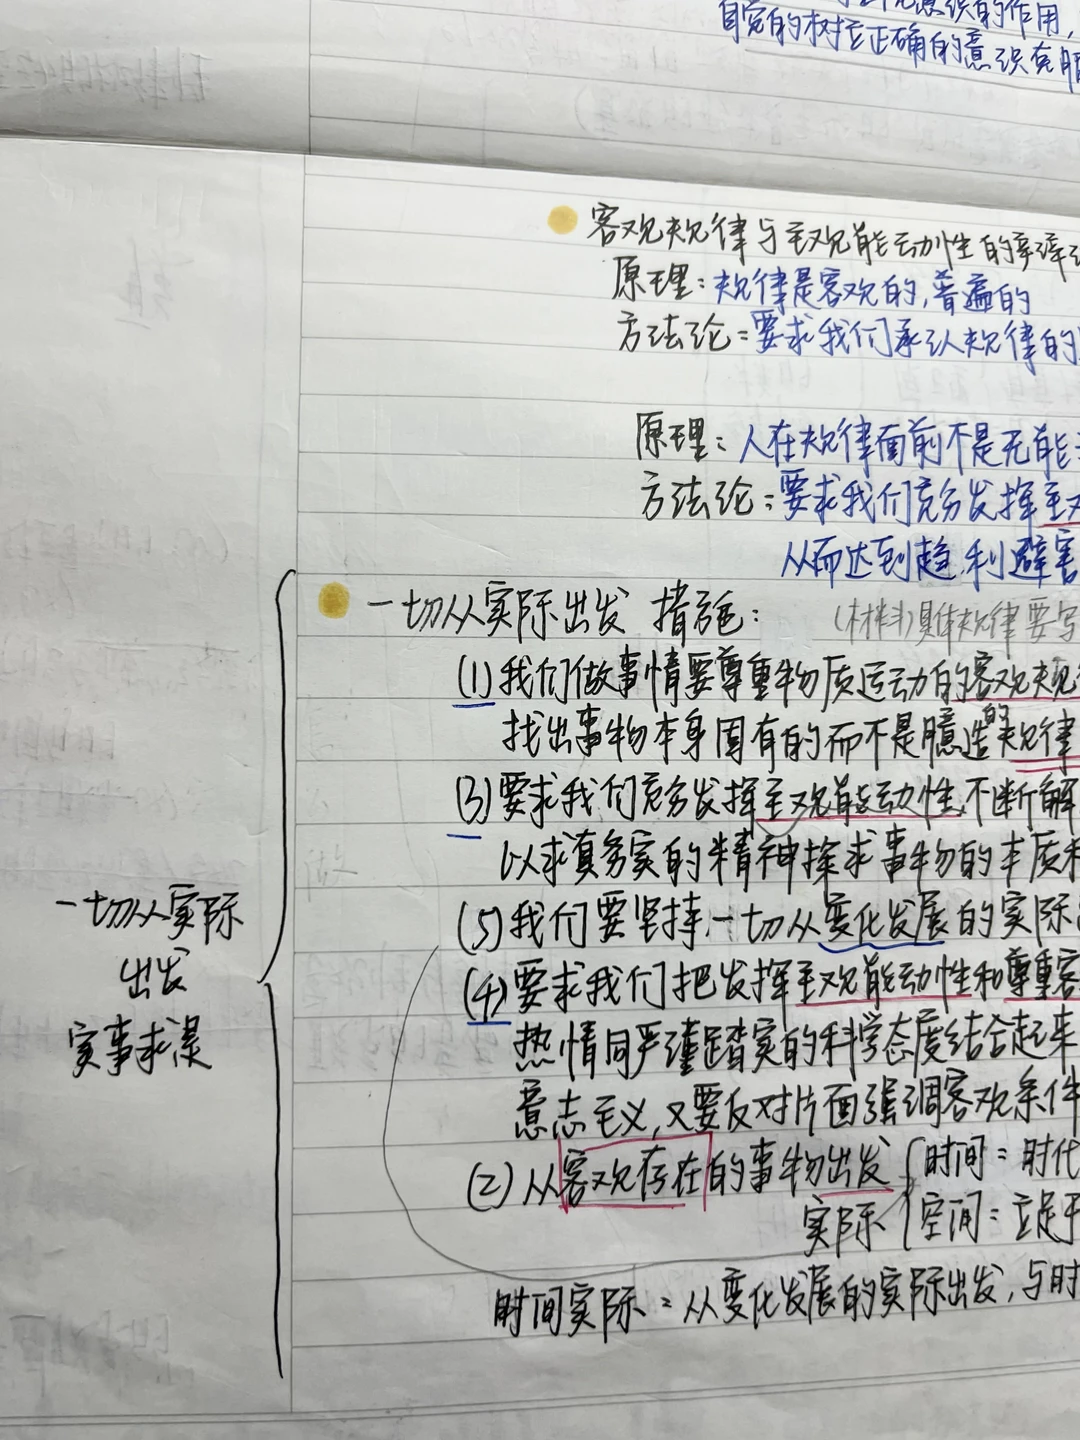 识的作用,
自觉的树立正确的意识克服
客观规律与主观能动性的辩证
原理:规律是客观的,普遍的
方法论:要求我们承认规律的
原理:人在规律面前不是无能
方法论:要求我们充分发挥主
从而达到趋利避害
一切从实际出发 措施:
(材料)具体规律要写
(1)我们做事情要尊重物质运动的客观规
找出事物本身固有的而不是臆造的规律
(3)要求我们充分发挥主观能动性,不断解
以求真务实的精神探求事物的本质和
(5)我们要坚持一切从变化发展的实际
(4)要求我们把发挥主观能动性和尊重客
热情同严谨踏实的科学态度结合起来
意志主义,又要反对片面强调客观条件
(2)从客观存在的事物出发{时间:时代
实际{空间:立足于
时间实际:从变化发展的实际出发,与时
一切从实际
出发
实事求是